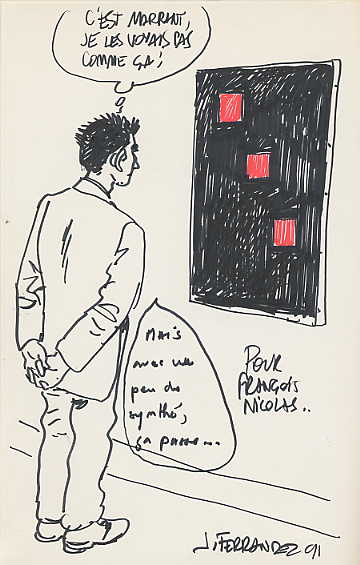 C'EST MARRANT,
JE LES VOYAIS PAS
COMME ÇA!
MAIS
avec un
peu de
synthé,
ça passe...
POUR
FRANÇOIS
NICOLAS..
J. FERRANDEZ 91